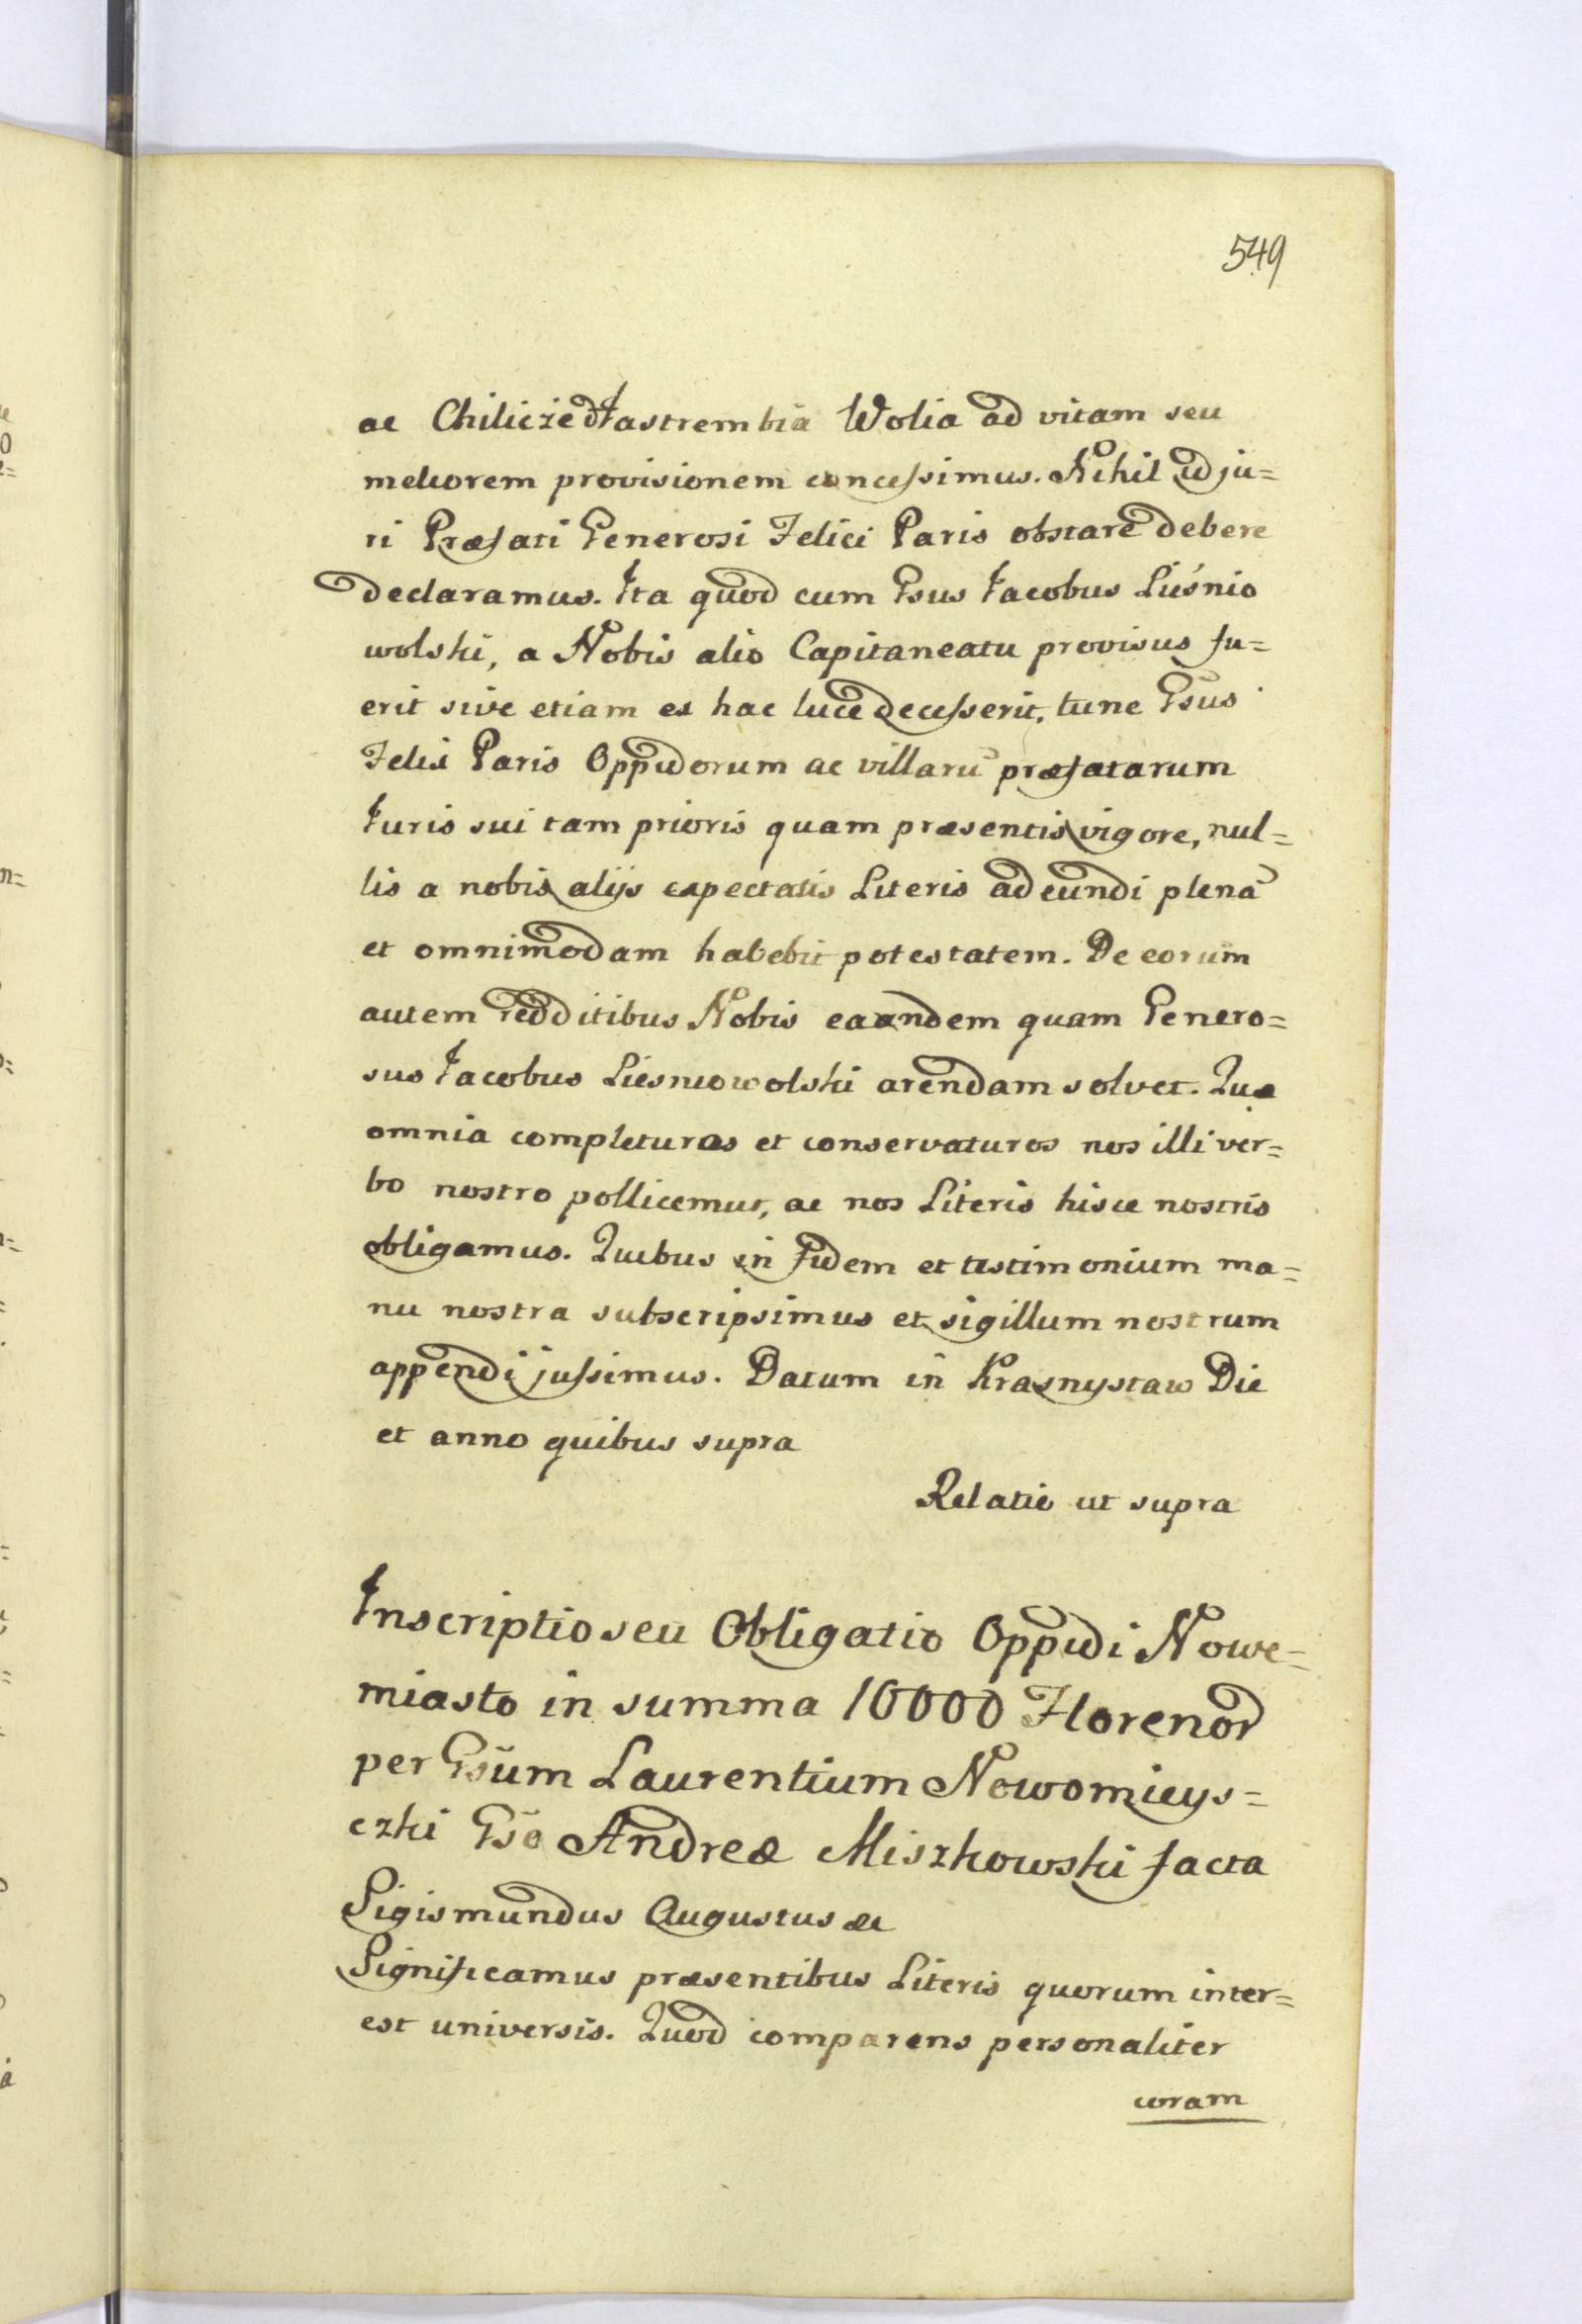 549
ac Chilicze et Jastrembia Wolia ad vitam seu
meliorem provisionem concessimus. Nihil id ju=
ri Præfati Generosi Felici Paris obstare debere
declaramus. Ita quod cum Gsus Jacobus Liesnio
wolski, a Nobis alio Capitaneatu provisus fu=
erit sive etiam ex hac luce decesserit, tunc Gsus
Felix Paris Oppidorum ac villarū præfatarum
Juris sui tam prioris quam præsentis vigore, nul=
lis a nobis alijs expectatis Literis adeundi plenā
et omnimodam habebit potestatem. De eorum
autem redditibus Nobis eaandem quam Genero=
sus Jacobus Liesniowolski arendam solvet. Quæ
omnia completuros et conservaturos nos illi ver=
bo nostro pollicemur, ac nos Literis hisce nostris
obligamus. Quibus in fidem et testimonium ma=
nu nostra subscripsimus et sigillum nostrum
appendi jussimus. Datum in Krasnystaw Die
et anno quibus supra
Relatio ut supra
Inscriptio seu Obligatio Oppidi Nowe=
miasto in summa 10000 Florenor
per Gsum Laurentium Nowomieys=
czki Gso Andreæ Miszkowski facta
Sigismundus Augustus &c
Significamus præsentibus Literis quorum inter=
est universis. Quod comparens personaliter
coram